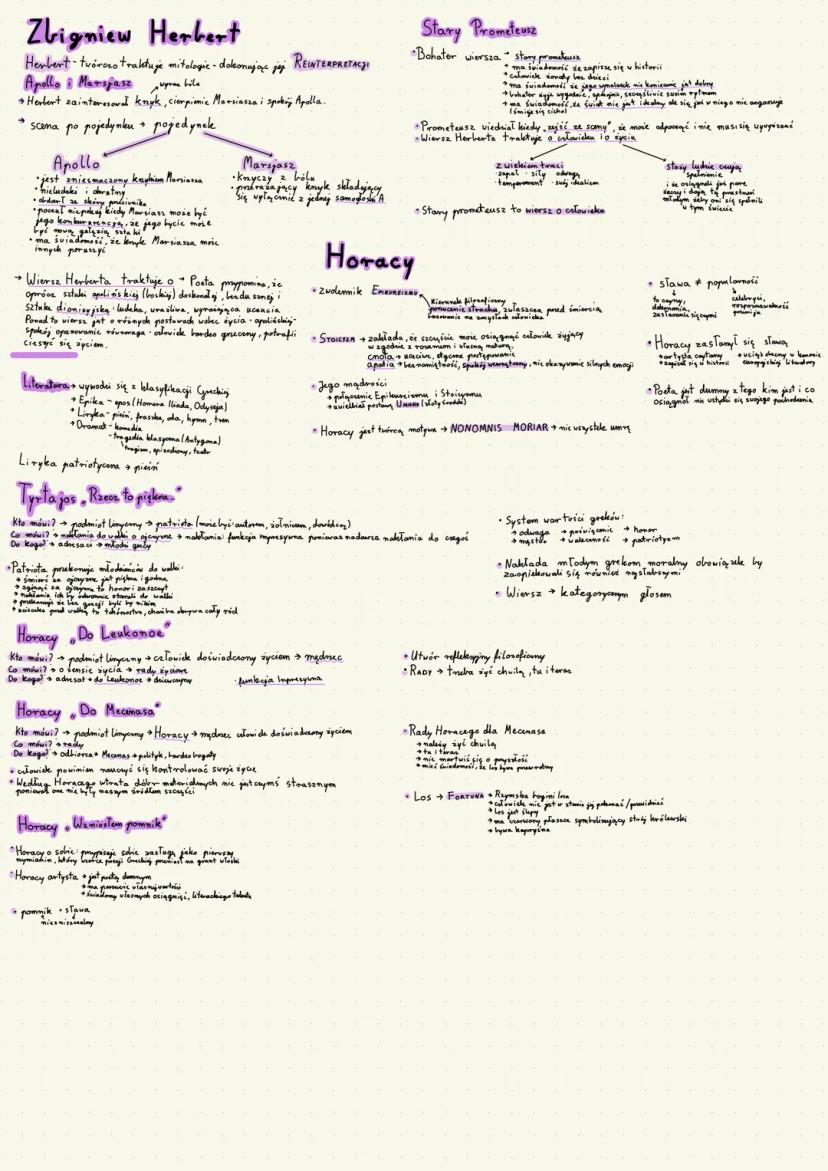 Zbigniew Herbert
Herbert - twórczo traktuje mitologie - dokonując jej REINTERPRETACJI
Apollo i Marsjasz
wyraz bólu
→ Herbert zainteresował krzyk, cierpienie Marsjasza i spokój Apolla.
→ scena po pojedynku → pojedynek
Apollo
• jest zniesmaczony krzykiem Marsjasza
• nieludzki i okrutny
• obdarł ze skóry przeciwnika
• poczuł niepokój kiedy Marsjasz może być
jego konkurencją, że jego bycie może
być nową gałęzią sztuki
• ma świadomość, że krzyk Marsjasza może
innych poruszyć
Marsjasz
• Krzyczy z bólu
• przerażający krzyk składający
się wyłącznie z jednej samogłoski A
→ Wiersz Herberta traktuje o → Poeta przypomina, że
oprócz sztuki apolińskiej (boskiej) doskonałej, bezdusznej i
sztuka dionizyjska: ludzka, wrażliwa, wyrażająca uczucia
Ponad to wiersz jest o różnych postawach wobec życia - apolińskiej -
spokój opanowanie równowaga - człowiek bardzo grzeczny, potrafi
cieszyć się życiem.
Stary Prometeusz
• Bohater wiersza → stary prometeusz
→ ma świadomość że zapisze się w historii
→ człowiek żonaty bez dzieci
→ ma świadomość że jego wynalazek nie koniecznie jest dobry
→ bohater żyje wygodnie, spokojnie, szczęśliwie swoim rytmem
→ ma świadomość, że świat nie jest idealny ale się już w niego nie angażuje
(śmieje się cicho)
• Prometeusz wiedział kiedy „zejść ze sceny", że może odpocząć i nie musi się
• Wiersz Herberta traktuje o człowieku i o życiu
z wiekiem traci
• zapał • siły odwagę
• temperament • swój idealizm
starzy ludzie czują
spełnienie
i że osiągnęli już parę
rzeczy i dają tą przestrzeń
młodym żeby oni się spełnili
w tym świecie
• Stary prometeusz to wiersz o człowieku
Horacy
• Zwolennik EPIKUREIZMU
Kierunek filozoficzny
porzucenie strachu, zwłaszcza przed śmiercią
bazowanie na zmysłach człowieka
• STOICYZM → zakłada, że szczęście może osiągnąć człowiek żyjący
w zgodnie z rozumem i własną naturą.
cnota → uczciwe, etyczne postępowanie
apatia → beznamiętność, spokój wewnętrzny, nie okazywanie silnych emocji
• Jego mądrości
→ połączenie Epikureizmu i Stoicyzmu
→ uwielbiał postawę UMIARU (złoty środek)
• Horacy jest twórcą motywu → NONOMNIS MORIAR → nie wszystek umrę
• sława ≠ popularność
to czyny,
dokonania,
zasłużenie się czymś
celebryci,
rozpoznawalność
przemija
• Horacy zasłynął się sławą
→ artysta czytany
→ zapisał się w historii
→ wciąż obecny w kanonie
europejskiej literatury
• Poeta jest dumny z tego kim jest i co
osiągnął nie wstydzi się swojego pochodzenia
Literatura → wywodzi się z klasyfikacji Greckiej
→ Epika - epos (Homera Iliada, Odyseja)
→ Liryka - pieśń, fraszka, oda, hymn, tren
→ Dramat - komedia
- tragedia klasyczna (Antygona)
tragizm, epizodiony, teatr
Liryka patriotyczna → pieśń
Tyrtajos „Rzecz to piękna..."
Kto mówi? → podmiot liryczny → patriota (może być: autorem, żołnierzem, dowódcą)
Co mówi? → nakłania do walki o ojczyznę → nakłania: funkcja impresywna ponieważ nadawca nakłania do czegoś
Do kogo? → adresaci → młodzi grecy
• Patriota przekonuje młodzieńców do walki:
→ śmierć za ojczyznę jest piękna i godna
→ zginąć za ojczyznę to honor i zaszczyt
→ nakłania ich by odważnie stanęli do walki
→ przekonuje że bez grecji byli by nikim
→ ucieczka przed walką to tchórzostwo, chańba okrywa cały ród
• System wartości greków:
→ odwaga → poświęcenie → honor
→ męstwo → waleczność → patriotyzm
• Nakłada młodym grekom moralny obowiązek by
zaopiekowali się również najsłabszymi
• Wiersz → kategorycznym głosem
Horacy „Do Leukonoe"
Kto mówi? → podmiot liryczny → człowiek doświadczony życiem → mędrzec
Co mówi? → o sensie życia → rady życiowe
Do kogo? → adresat → do Leukonoe → dziewczyny
• funkcja Impresywna
• Utwór refleksyjny filozoficzny
• RADY → trzeba żyć chwilą, tu i teraz
Horacy „Do Mecenasa"
Kto mówi? → podmiot liryczny → Horacy → mędrzec człowiek doświadczony życiem
Co mówi? → rady
Do kogo? → odbiorca → Mecenas → polityk, bardzo bogaty
• człowiek powinien nauczyć się kontrolować swoje życie
• Według Horacego utrata dóbr materialnych nie jest czymś strasznym
ponieważ one nie były naszym źródłem szczęści
• Rady Horacego dla Mecenasa
→ należy żyć chwilą
→ tu i teraz
→ nie martwić się o przyszłość
→ mieć świadomość, że los bywa przewrotny
• Los → FORTUNA → Rzymska bogini losu
→ człowiek nie jest w stanie jej pokonać / przewidzieć
→ Los jest ślepy
→ ma czerwony płaszcz symbolizujący strój królewski
→ bywa kapryśna
Horacy „Wzniosłem pomnik"
• Horacy o sobie: przypisuje sobie zasługę jako pierwszy
rzymianin, który wzorce poezji Greckiej przeniósł na grunt włoski
• Horacy artysta → jest poetą dumnym
→ ma poczucie własnej wartości
→ świadomy własnych osiągnięć, literackiego talentu
• pomnik • sława
niezniszczalny